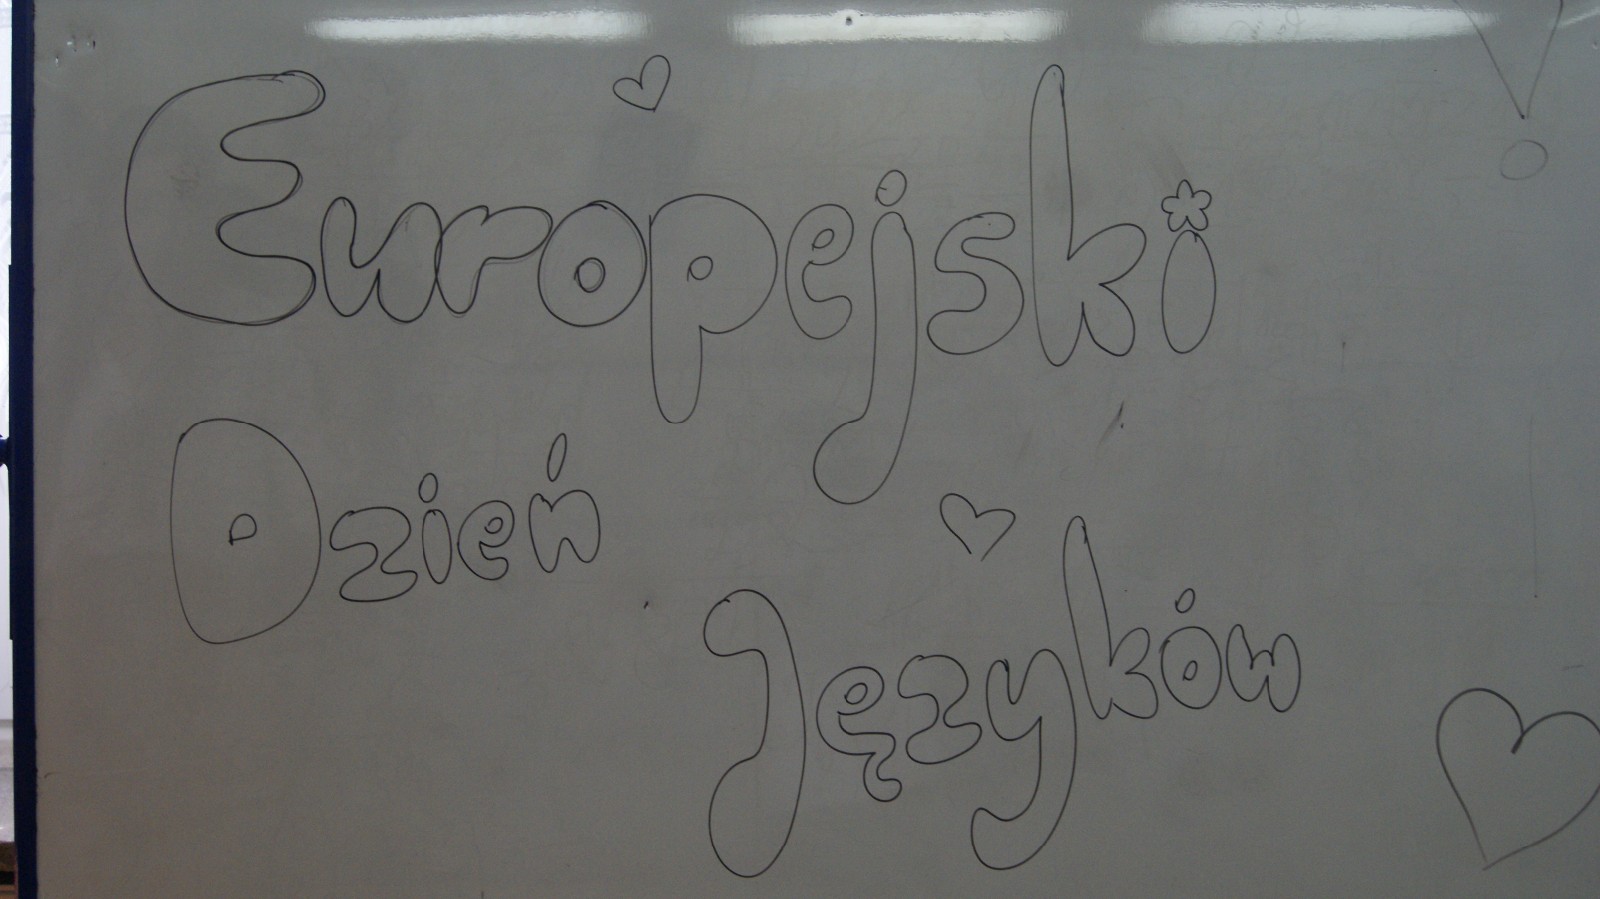 Europejski
Dzień
Języków